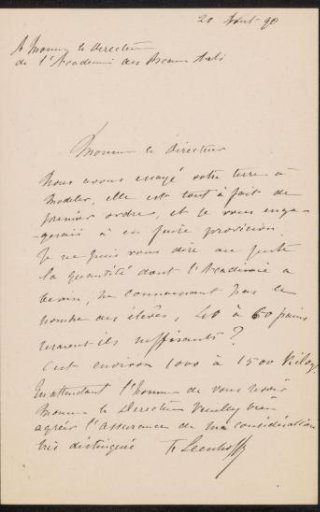 20 Aout 90
A Monsr le Directeur
de l'Academie des Beaux Arts
Monsieur le Directeur
Nous avons essayé votre terre à
modeler, elle est tout à fait de
premier ordre, et je vous enga-
gerais à en faire provision.
Je ne puis vous dire au juste
la quantité dont l'Academie a
besoin, ne connaissant pas le
nombre des élèves, 40 à 60 pains
seraient ils suffisants?
C'est environ 1000 à 1500 Kilog.
En attendant l'honneur de vous revoir
Monsieur le Directeur Veuillez bien
agréer l'assurance de ma considération
très distinguée F. Leenhoff